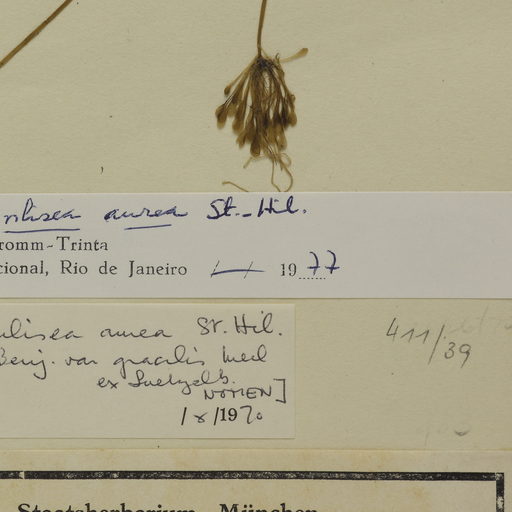 aurea St.-Hil.
romm-Trinta
cional, Rio de Janeiro 1977
ulisea aurea St. Hil.
Benj. var gracilis
ex Luetzelb.
NOMEN]
1/x/1970
411/39
Staatsherbarium München